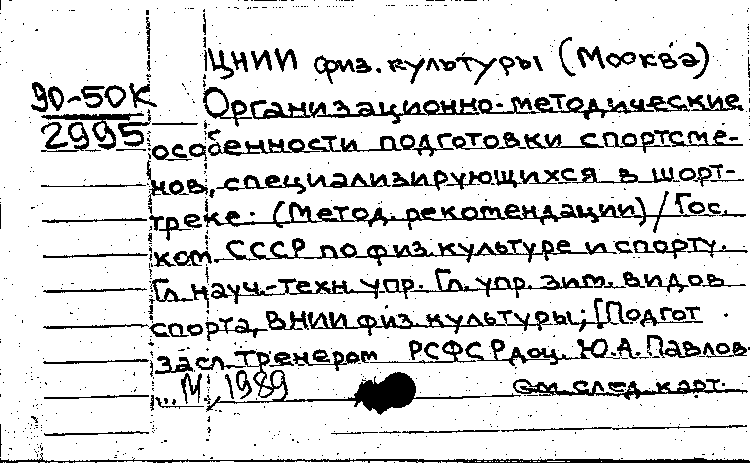 ЦНИИ физ. культуры (Москва)
90-50К
2995
Организационно-методические
особенности подготовки спортсме-
нов, специализирующихся в шорт-
треке: (Метод. рекомендации) / Гос.
ком. СССР по физ. культуре и спорту.
Гл. науч.-техн. упр. Гл. упр. зим. видов
спорта, ВНИИ физ. культуры; [Подгот.
засл. тренером РСФСР доц. Ю.А. Павлов
... М., 1989
См. след. карт.